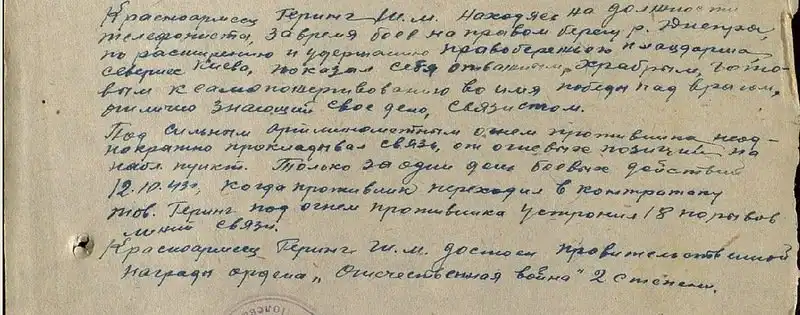 Красноармеец Геринг Ш.М. находясь на должности
телефониста, за время боев на правом берегу р. Днепра,
по расширению и удержанию правобережного плацдарма
севернее Киева, показал себя отважным, храбрым, гото-
вым к самопожертвованию во имя победы над врагом,
отлично знающий свое дело, связистом.
Под сильным артминометным огнем противника неод-
нократно прокладывал связь, от огневых позиций на
набл. пункт. Только за один день боевых действий
12.10.43г, когда противник переходил в контратаку
тов. Геринг под огнем противника устронил 18 порывов
линий связи.
Красноармеец Геринг Ш.М. достоен правительственной
награды ордена „Отечественная война" 2 степени.